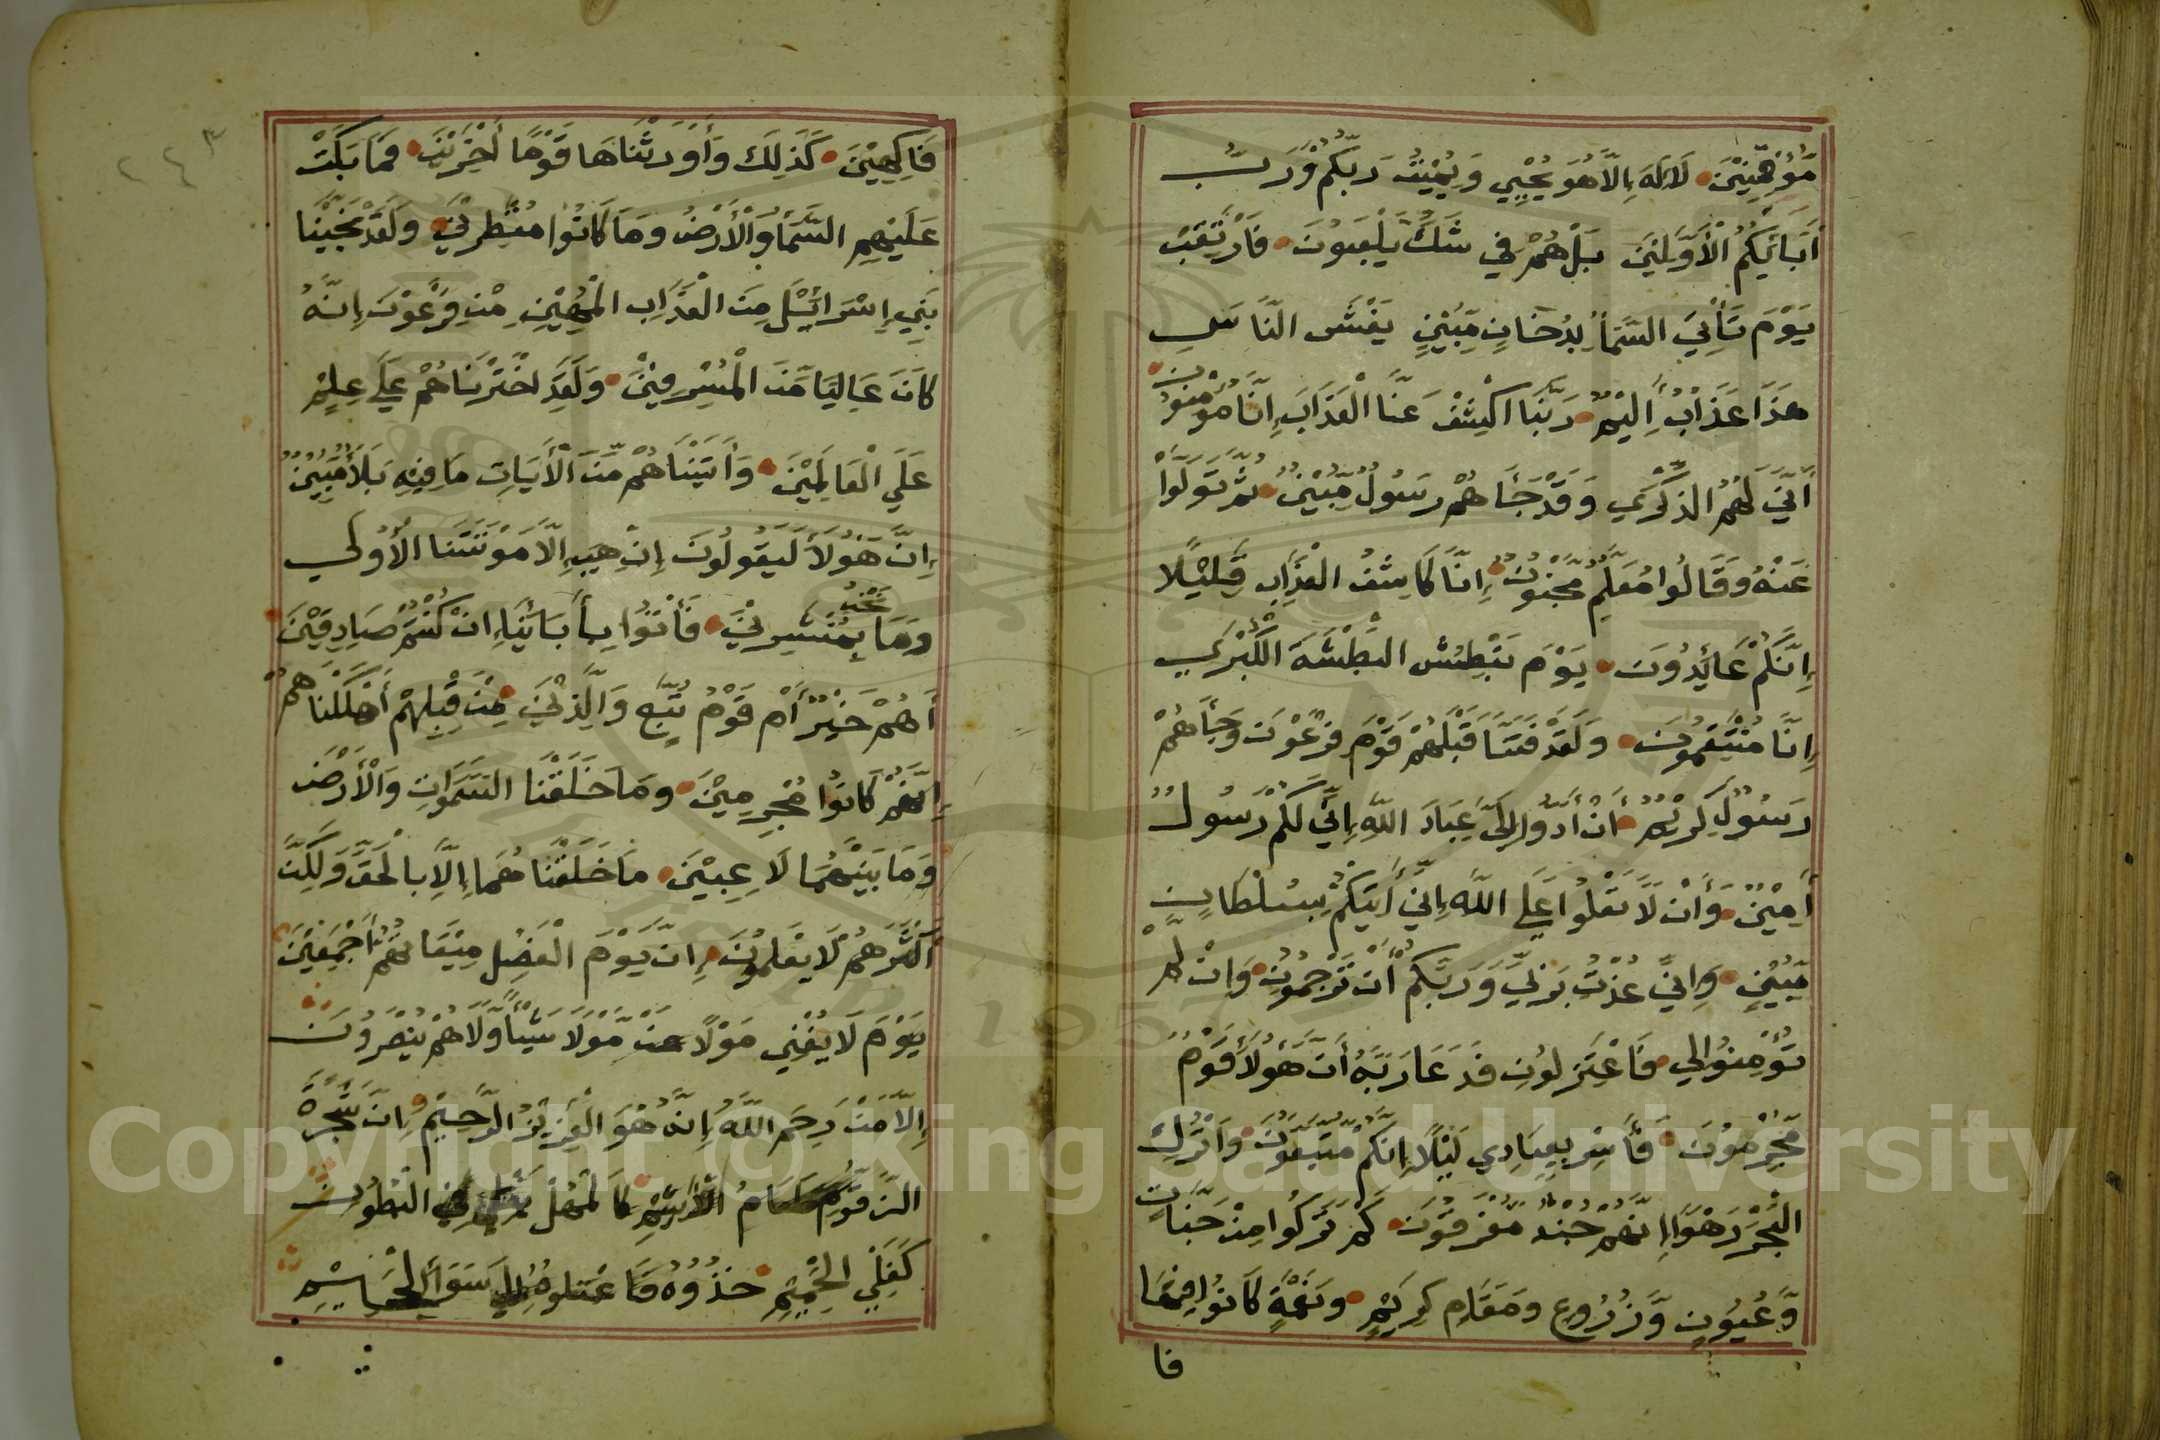 مُّوْقِنِيْنَ لَا اِلَهَ اِلَّا هُوَ يُحْيِي وَيُمِيْتُ رَبُّكُمْ وَرَبُّ
أَبَائِكُمُ الْأَوَّلِيْنَ بَلْ هُمْ فِي شَكٍّ يَلْعَبُوْنَ فَارْتَقِبْ
يَوْمَ تَأْتِيَ السَّمَأُ بِدُخَانٍ مُّبِيْنٍ يَغْشَى النَّاسَ
هَذَا عَذَابٌ أَلِيْمٌ رَبَّنَا اكْشِفْ عَنَّا الْعَذَابَ اِنَّا مُؤْمِنُوْنَ
أَنَّيَ لَهُمُ الذِّكْرَي وَقَدْ جَأَهُمْ رَسُوْلٌ مُّبِيْنٌ ثُمَّ تَوَلَّوْا
عَنْهُ وَقَالُوا مُعَلَّمٌ مَّجْنُوْنٌ اِنَّا كَاشِفُ الْعَذَابِ قَلِيْلًا
اِنَّكُمْ عَائِدُوْنَ يَوْمَ نَبْطِشُ الْبَطْشَةَ الْكُبْرَي
اِنَّا مُنْتَقِمُوْنَ وَلَقَدْ فَتَنَّا قَبْلَهُمْ قَوْمَ فِرْعَوْنَ وَجَأَهُمْ
رَسُوْلٌ كَرِيْمٌ أَنْ أَدُّوْا اِلَيَّ عِبَادَ اللَّهِ اِنِّي لَكُمْ رَسُوْلٌ
أَمِيْنٌ وَأَنْ لَّا تَعْلُوْا عَلَي اللَّهِ اِنِّي أَتِيْكُمْ بِسُلْطَانٍ
مُّبِيْنٍ وَاِنِّي عُذْتُ بِرَبِّي وَرَبِّكُمْ أَنْ تَرْجُمُوْنِ وَاِنْ لَّمْ
تُؤْمِنُوْا لِي فَاعْتَزِلُوْنِ فَدَعَا رَبَّهُ أَنَّ هَؤُلَأِ قَوْمٌ
مُّجْرِمُوْنَ فَأَسْرِ بِعِبَادِي لَيْلًا اِنَّكُمْ مُّتَّبَعُوْنَ وَاتْرُكِ
الْبَحْرَ رَهْوًا اِنَّهُمْ جُنْدٌ مُّغْرَقُوْنَ كَمْ تَرَكُوْا مِنْ جَنَّاتٍ
وَّعُيُوْنٍ وَّزُرُوْعٍ وَمَقَامٍ كَرِيْمٍ وَنَعْمَةٍ كَانُوْا فِيْهَا
فا
فَاكِهِيْنَ كَذَلِكَ وَأَوْرَثْنَاهَا قَوْمًا أَخَرِيْنَ فَمَا بَكَتْ
عَلَيْهِمِ السَّمَأُ وَالْأَرْضُ وَمَا كَانُوْا مُنْظَرِيْنَ وَلَقَدْ نَجَّيْنَا
بَنِي اِسْرَائِيْلَ مِنَ الْعَذَابِ الْمُهِيْنِ مِنْ فِرْعَوْنَ اِنَّهُ
كَانَ عَالِيًا مِّنَ الْمُسْرِفِيْنَ وَلَقَدِ اخْتَرْنَاهُمْ عَلَي عِلْمٍ
عَلَي الْعَالَمِيْنَ وَأَتَيْنَاهُمْ مِّنَ الْأَيَاتِ مَا فِيْهِ بَلَأٌ مُّبِيْنٌ
اِنَّ هَؤُلَأِ لَيَقُوْلُوْنَ اِنْ هِيَ اِلَّا مَوْتَتُنَا الْأُوْلَي
وَمَا نَحْنُ بِمُنْشَرِيْنَ فَأْتُوْا بِأَبَائِنَا اِنْ كُنْتُمْ صَادِقِيْنَ
أَهُمْ خَيْرٌ أَمْ قَوْمُ تُبَّعٍ وَالَّذِيْنَ مِنْ قَبْلِهِمْ أَهْلَكْنَاهُمْ
اِنَّهُمْ كَانُوْا مُجْرِمِيْنَ وَمَا خَلَقْنَا السَّمَوَاتِ وَالْأَرْضَ
وَمَا بَيْنَهُمَا لَاعِبِيْنَ مَا خَلَقْنَاهُمَا اِلَّا بِالْحَقِّ وَلَكِنَّ
أَكْثَرَهُمْ لَا يَعْلَمُوْنَ اِنَّ يَوْمَ الْفَصْلِ مِيْقَاتُهُمْ أَجْمَعِيْنَ
يَوْمَ لَا يُغْنِي مَوْلًا عَنْ مَّوْلًا شَيْئًا وَّلَا هُمْ يُنْصَرُوْنَ
اِلَّا مَنْ رَحِمَ اللَّهُ اِنَّهُ هُوَ الْعَزِيْزُ الرَّحِيْمُ اِنَّ شَجَرَةَ
الزَّقُّوْمِ طَعَامُ الْأَثِيْمِ كَالْمُهْلِ فِي الْبُطُوْنِ
كَغَلْيِ الْحَمِيْمِ خُذُوْهُ فَاعْتِلُوْهُ اِلَي سَوَأِ الْجَحِيْمِ